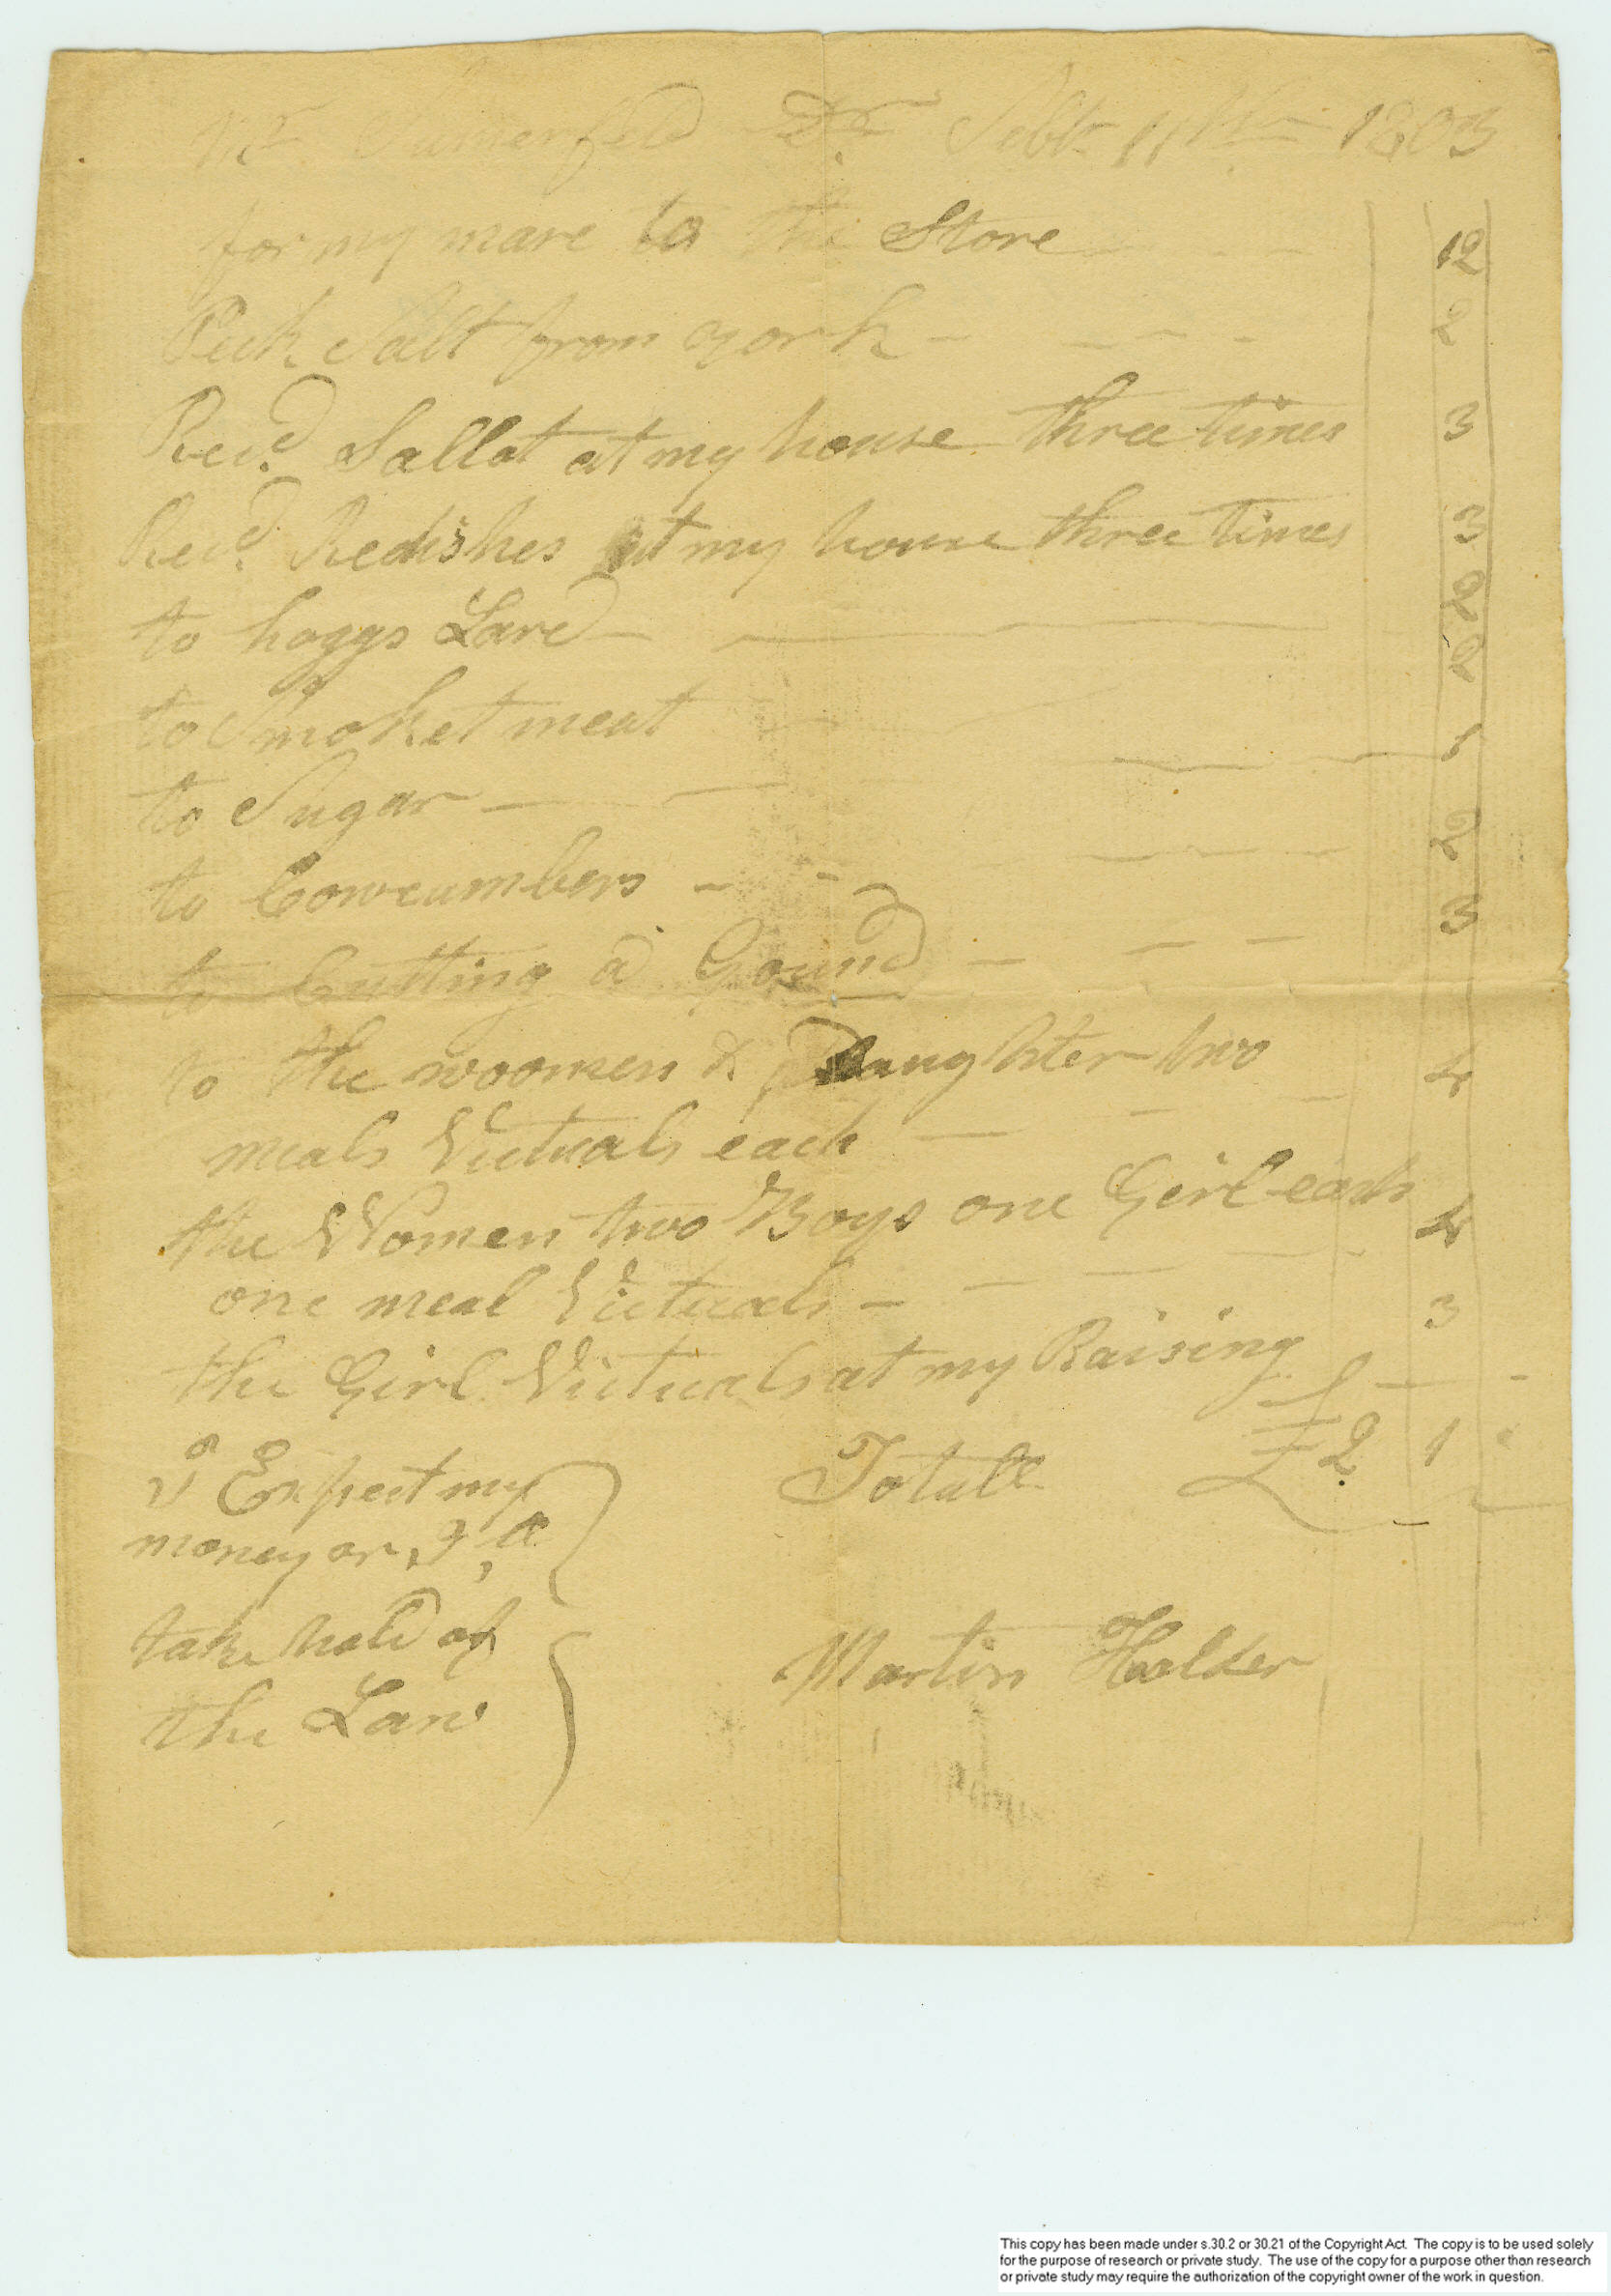 Mr Sumerfeld Dr Sebtr 11th 1803
for my mare to the Store 12
Peck Salt from york 2
Recd. Sallat at my house three times 3
Recd. Redishes at my house three times 3
to hoggs Lard 2
to Smoket meat 2
to Sugar 1
to Cowcumbers 2
to Cutting a Gound 3
to the woomen & Daughter two 4
meals Victuals each
the Women two Boys one Girl each 4
one meal Victuals
the Girl Victuals at my Raising 3
Totall £2 1
I Expect my
money or I'll
take hold of
the Law
Martin Holder
This copy has been made under s.30.2 or 30.21 of the Copyright Act. The copy is to be used solely
for the purpose of research or private study. The use of the copy for a purpose other than research
or private study may require the authorization of the copyright owner of the work in question.